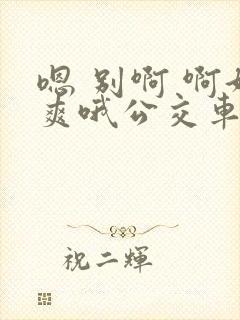 嗯 别啊 啊好
爽哦公交车
祝二辉